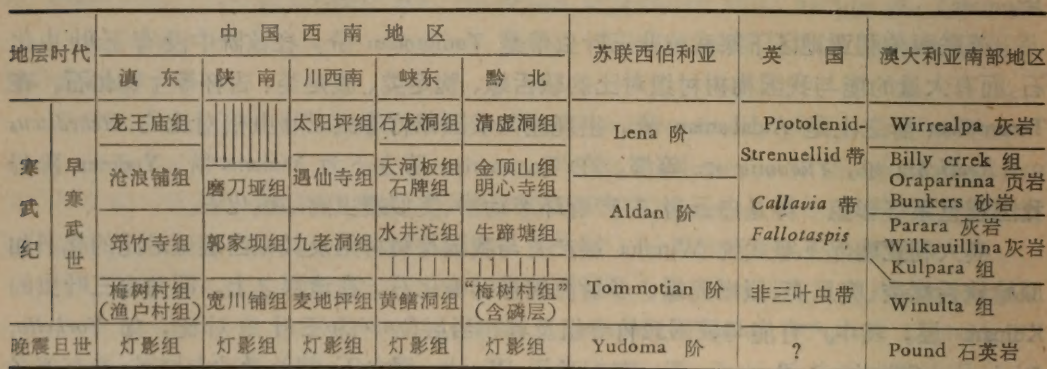 地层时代
中国西南地区
苏联西伯利亚
英国
澳大利亚南部地区
滇东
陕南
川西南
峡东
黔北
寒武纪
早寒武世
龙王庙组
太阳坪组
石龙洞组
清虚洞组
Lena 阶
Protolenid-
Strenuellid 带
Wirrealpa 灰岩
沧浪铺组
磨刀垭组
遇仙寺组
天河板组
石牌组
金顶山组
明心寺组
Billy crrek 组
Oraparinna 页岩
Bunkers 砂岩
筇竹寺组
郭家坝组
九老洞组
水井沱组
牛蹄塘组
Aldan 阶
Callavia 带
Fallotaspis
Parara 灰岩
Wilkauillina 灰岩
Kulpara 组
梅树村组
(渔户村组)
宽川铺组
麦地坪组
黄鳝洞组
“梅树村组”
(含磷层)
Tommotian 阶
非三叶虫带
Winulta 组
晚震旦世
灯影组
灯影组
灯影组
灯影组
灯影组
Yudoma 阶
?
Pound 石英岩